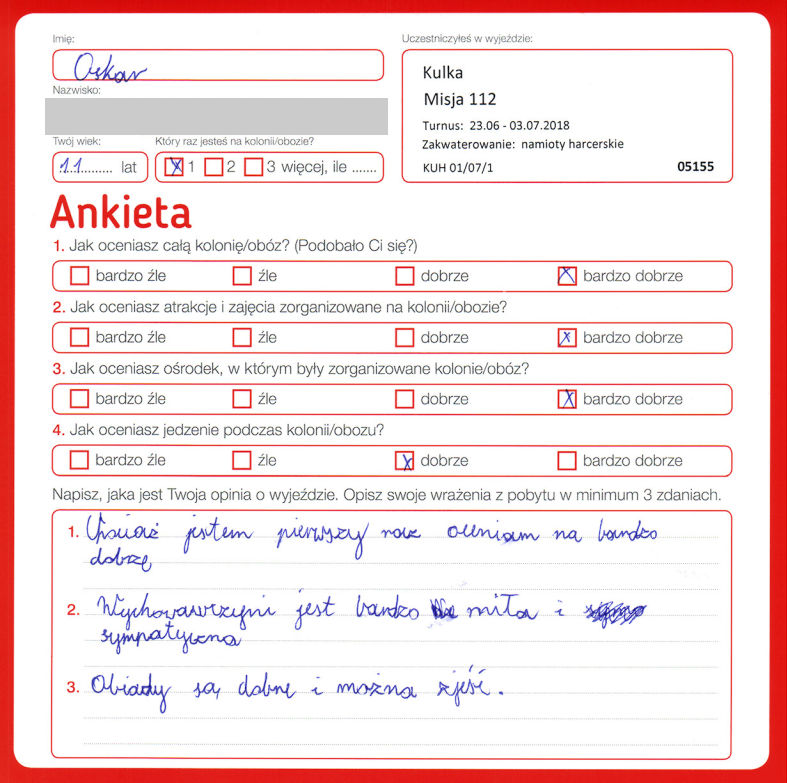 Imię:
Oskar
Nazwisko:
Twój wiek:
Który raz jesteś na kolonii/obozie?
11 lat
1 2 3 więcej, ile .......
Uczestniczyłeś w wyjeździe:
Kulka
Misja 112
Turnus: 23.06 - 03.07.2018
Zakwaterowanie: namioty harcerskie
KUH 01/07/1 05155
Ankieta
1. Jak oceniasz całą kolonię/obóz? (Podobało Ci się?)
bardzo źle źle dobrze bardzo dobrze
2. Jak oceniasz atrakcje i zajęcia zorganizowane na kolonii/obozie?
bardzo źle źle dobrze bardzo dobrze
3. Jak oceniasz ośrodek, w którym były zorganizowane kolonie/obóz?
bardzo źle źle dobrze bardzo dobrze
4. Jak oceniasz jedzenie podczas kolonii/obozu?
bardzo źle źle dobrze bardzo dobrze
Napisz, jaka jest Twoja opinia o wyjeździe. Opisz swoje wrażenia z pobytu w minimum 3 zdaniach.
1. Chociaż jestem pierwszy raz oceniam na bardzo
dobrze
2. Wychowawczyni jest bardzo miła i
sympatyczna
3. Obiady są dobre i można zjeść.